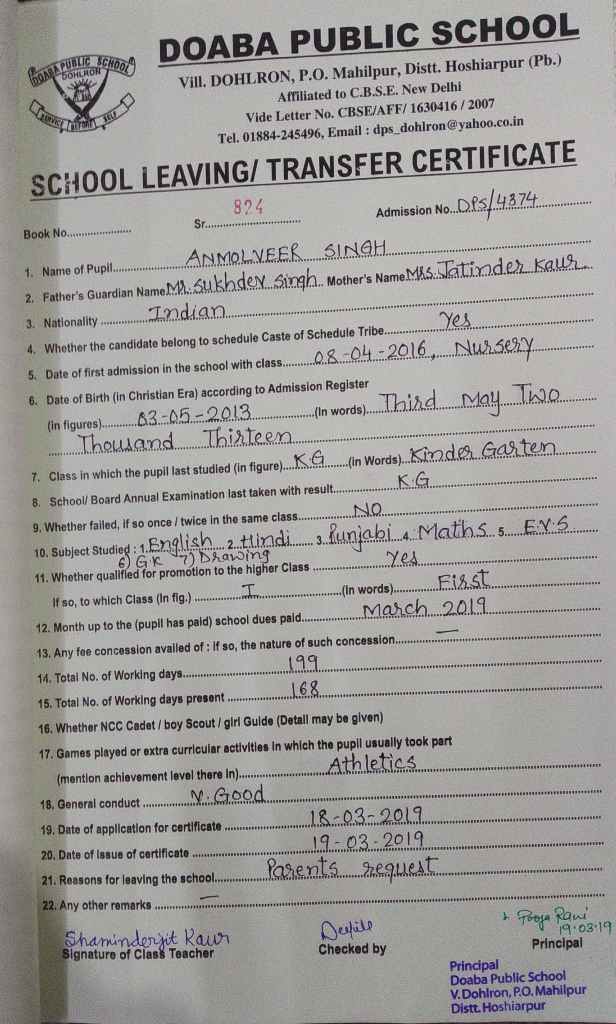 DOABA PUBLIC SCHOOL
DOABA PUBLIC SCHOOL
DOHLRON
SERVICE BEFORE SELF
Vill. DOHLRON, P.O. Mahilpur, Distt. Hoshiarpur (Pb.)
Affiliated to C.B.S.E. New Delhi
Vide Letter No. CBSE/AFF/ 1630416 / 2007
Tel. 01884-245496, Email : dps_dohlron@yahoo.co.in
SCHOOL LEAVING/ TRANSFER CERTIFICATE
Book No.................... Sr. 824 Admission No. DPS/4374
1. Name of Pupil ANMOLVEER SINGH
2. Father's Guardian Name Mr. Sukhdev Singh Mother's Name Mrs. Jatinder Kaur
3. Nationality Indian
4. Whether the candidate belong to schedule Caste of Schedule Tribe Yes
5. Date of first admission in the school with class 08-04-2016, Nursery
6. Date of Birth (in Christian Era) according to Admission Register
(in figures) 03-05-2013 (In words) Third May Two
Thousand Thirteen
7. Class in which the pupil last studied (in figure) K.G (in Words) Kinder Garten
8. School/ Board Annual Examination last taken with result K.G
9. Whether failed, if so once / twice in the same class NO
10. Subject Studied : 1. English 2. Hindi 3. Punjabi 4. Maths 5. E.V.S
6) GK 7) Drawing
11. Whether qualified for promotion to the higher Class Yes
If so, to which Class (In fig.) I (In words) First
12. Month up to the (pupil has paid) school dues paid March 2019
13. Any fee concession availed of : if so, the nature of such concession —
14. Total No. of Working days 199
15. Total No. of Working days present 168
16. Whether NCC Cadet / boy Scout / girl Guide (Detail may be given)
17. Games played or extra curricular activities in which the pupil usually took part
(mention achievement level there in) Athletics
18. General conduct V. Good
19. Date of application for certificate 18-03-2019
20. Date of Issue of certificate 19-03-2019
21. Reasons for leaving the school Parents request
22. Any other remarks —
Shaminderjit Kaur Pooja Rani
19.03.19
Signature of Class Teacher Checked by Principal
Principal
Doaba Public School
V. Dohlron, P.O. Mahilpur
Distt. Hoshiarpur